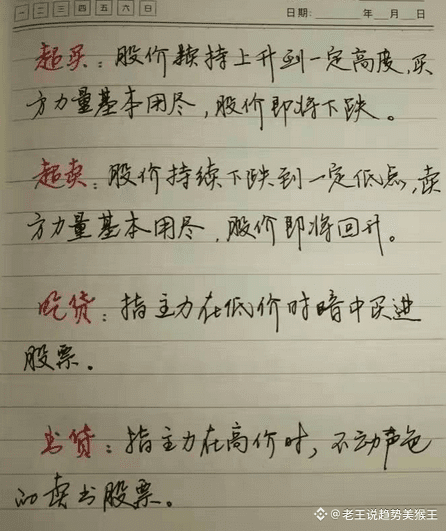 一 二 三 四 五 六 日 日期: 年 月 日
超买：股价持续上升到一定高度，买
方力量基本用尽，股价即将下跌。
超卖：股价持续下跌到一定低点，卖
方力量基本用尽，股价即将回升。
吃货：指主力在低价时暗中买进
股票。
出货：指主力在高价时，不动声色
的卖出股票。
@老王说趋势美猴王